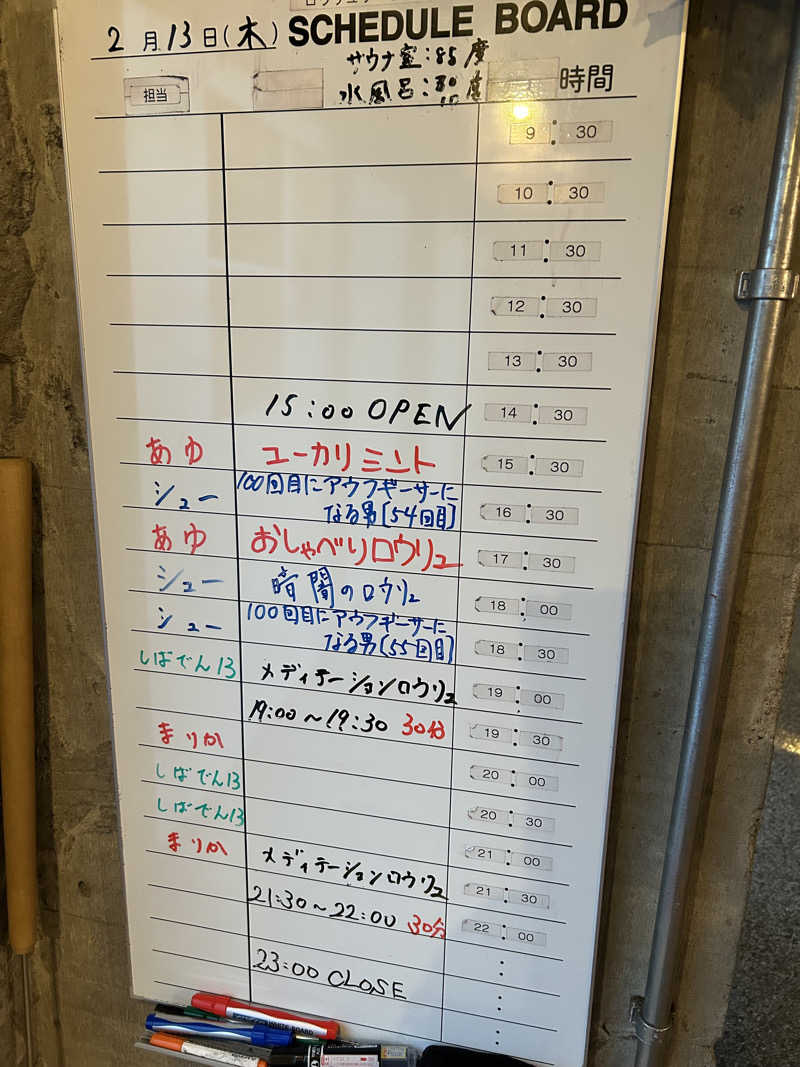 2月13日(木) SCHEDULE BOARD
サウナ室:85度
担当 水風呂: 度 時間
9:30
10:30
11:30
12:30
13:30
15:00 OPEN 14:30
あゆ ユーカリミント 15:30
シュー 100回目にアウフギーサーに
なる男[54回目] 16:30
あゆ おしゃべりロウリュ 17:30
シュー 暗闇のロウリュ 18:00
シュー 100回目にアウフギーサーに
なる男[55回目] 18:30
しばでん13 メディテーションロウリュ 19:00
19:00~19:30 30分 19:30
まりか 20:00
しばでん13 20:30
しばでん13 21:00
まりか メディテーションロウリュ 21:30
21:30~22:00 30分 22:00
:
23:00 CLOSE :
: